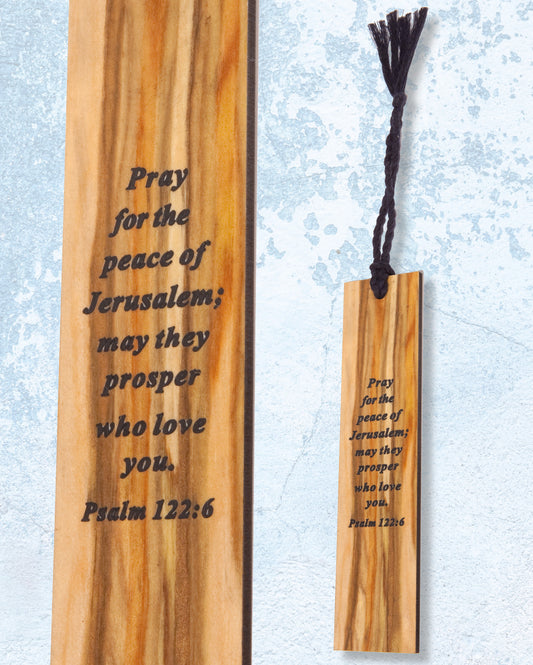 Pray
for the
peace of
Jerusalem;
may they
prosper
who love
you.
Psalm 122:6
Pray
for the
peace of
Jerusalem;
may they
prosper
who love
you.
Psalm 122:6